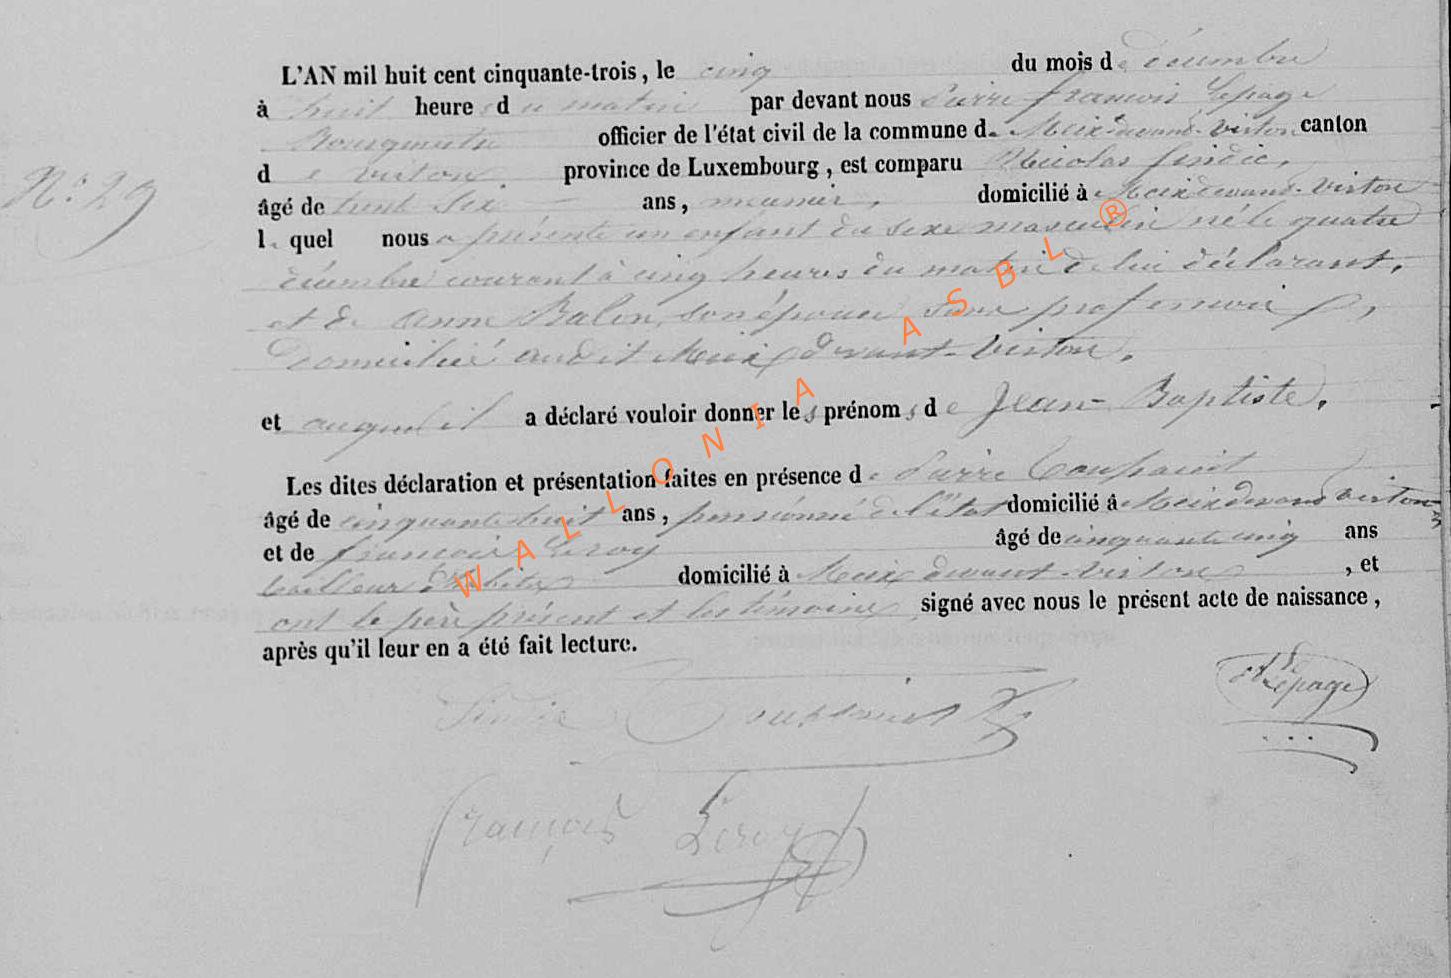 L'AN mil huit cent cinquante-trois, le cinq du mois de décembre
à huit heures du matin par devant nous Pierre françois Lepage
Bourgmestre officier de l'état civil de la commune de Meix devant-virton canton
de virton province de Luxembourg, est comparu Nicolas findic,
N.° 29
âgé de trente Six ans, meunier, domicilié à Meix devant-virton
lequel nous a présenté un enfant du sexe masculin né le quatre
décembre courant à cinq heures du matin de lui déclarant,
et de anne Balon, son épouse sans profession,
Domiciliée audit Meix devant-Virton,
et auquel il a déclaré vouloir donner les prénoms de Jean Baptiste,
Les dites déclaration et présentation faites en présence de Pierre
âgé de cinquante huit ans, pensionné de l'état domicilié à Meix devant virton
et de françois Leroy âgé de cinquante cinq ans
tailleur d'habits domicilié à Meix devant-virton, et
ont le père présent et les témoins signé avec nous le présent acte de naissance,
après qu'il leur en a été fait lecture.
Lepage
françois Leroy
WALLONIA ASBL ®